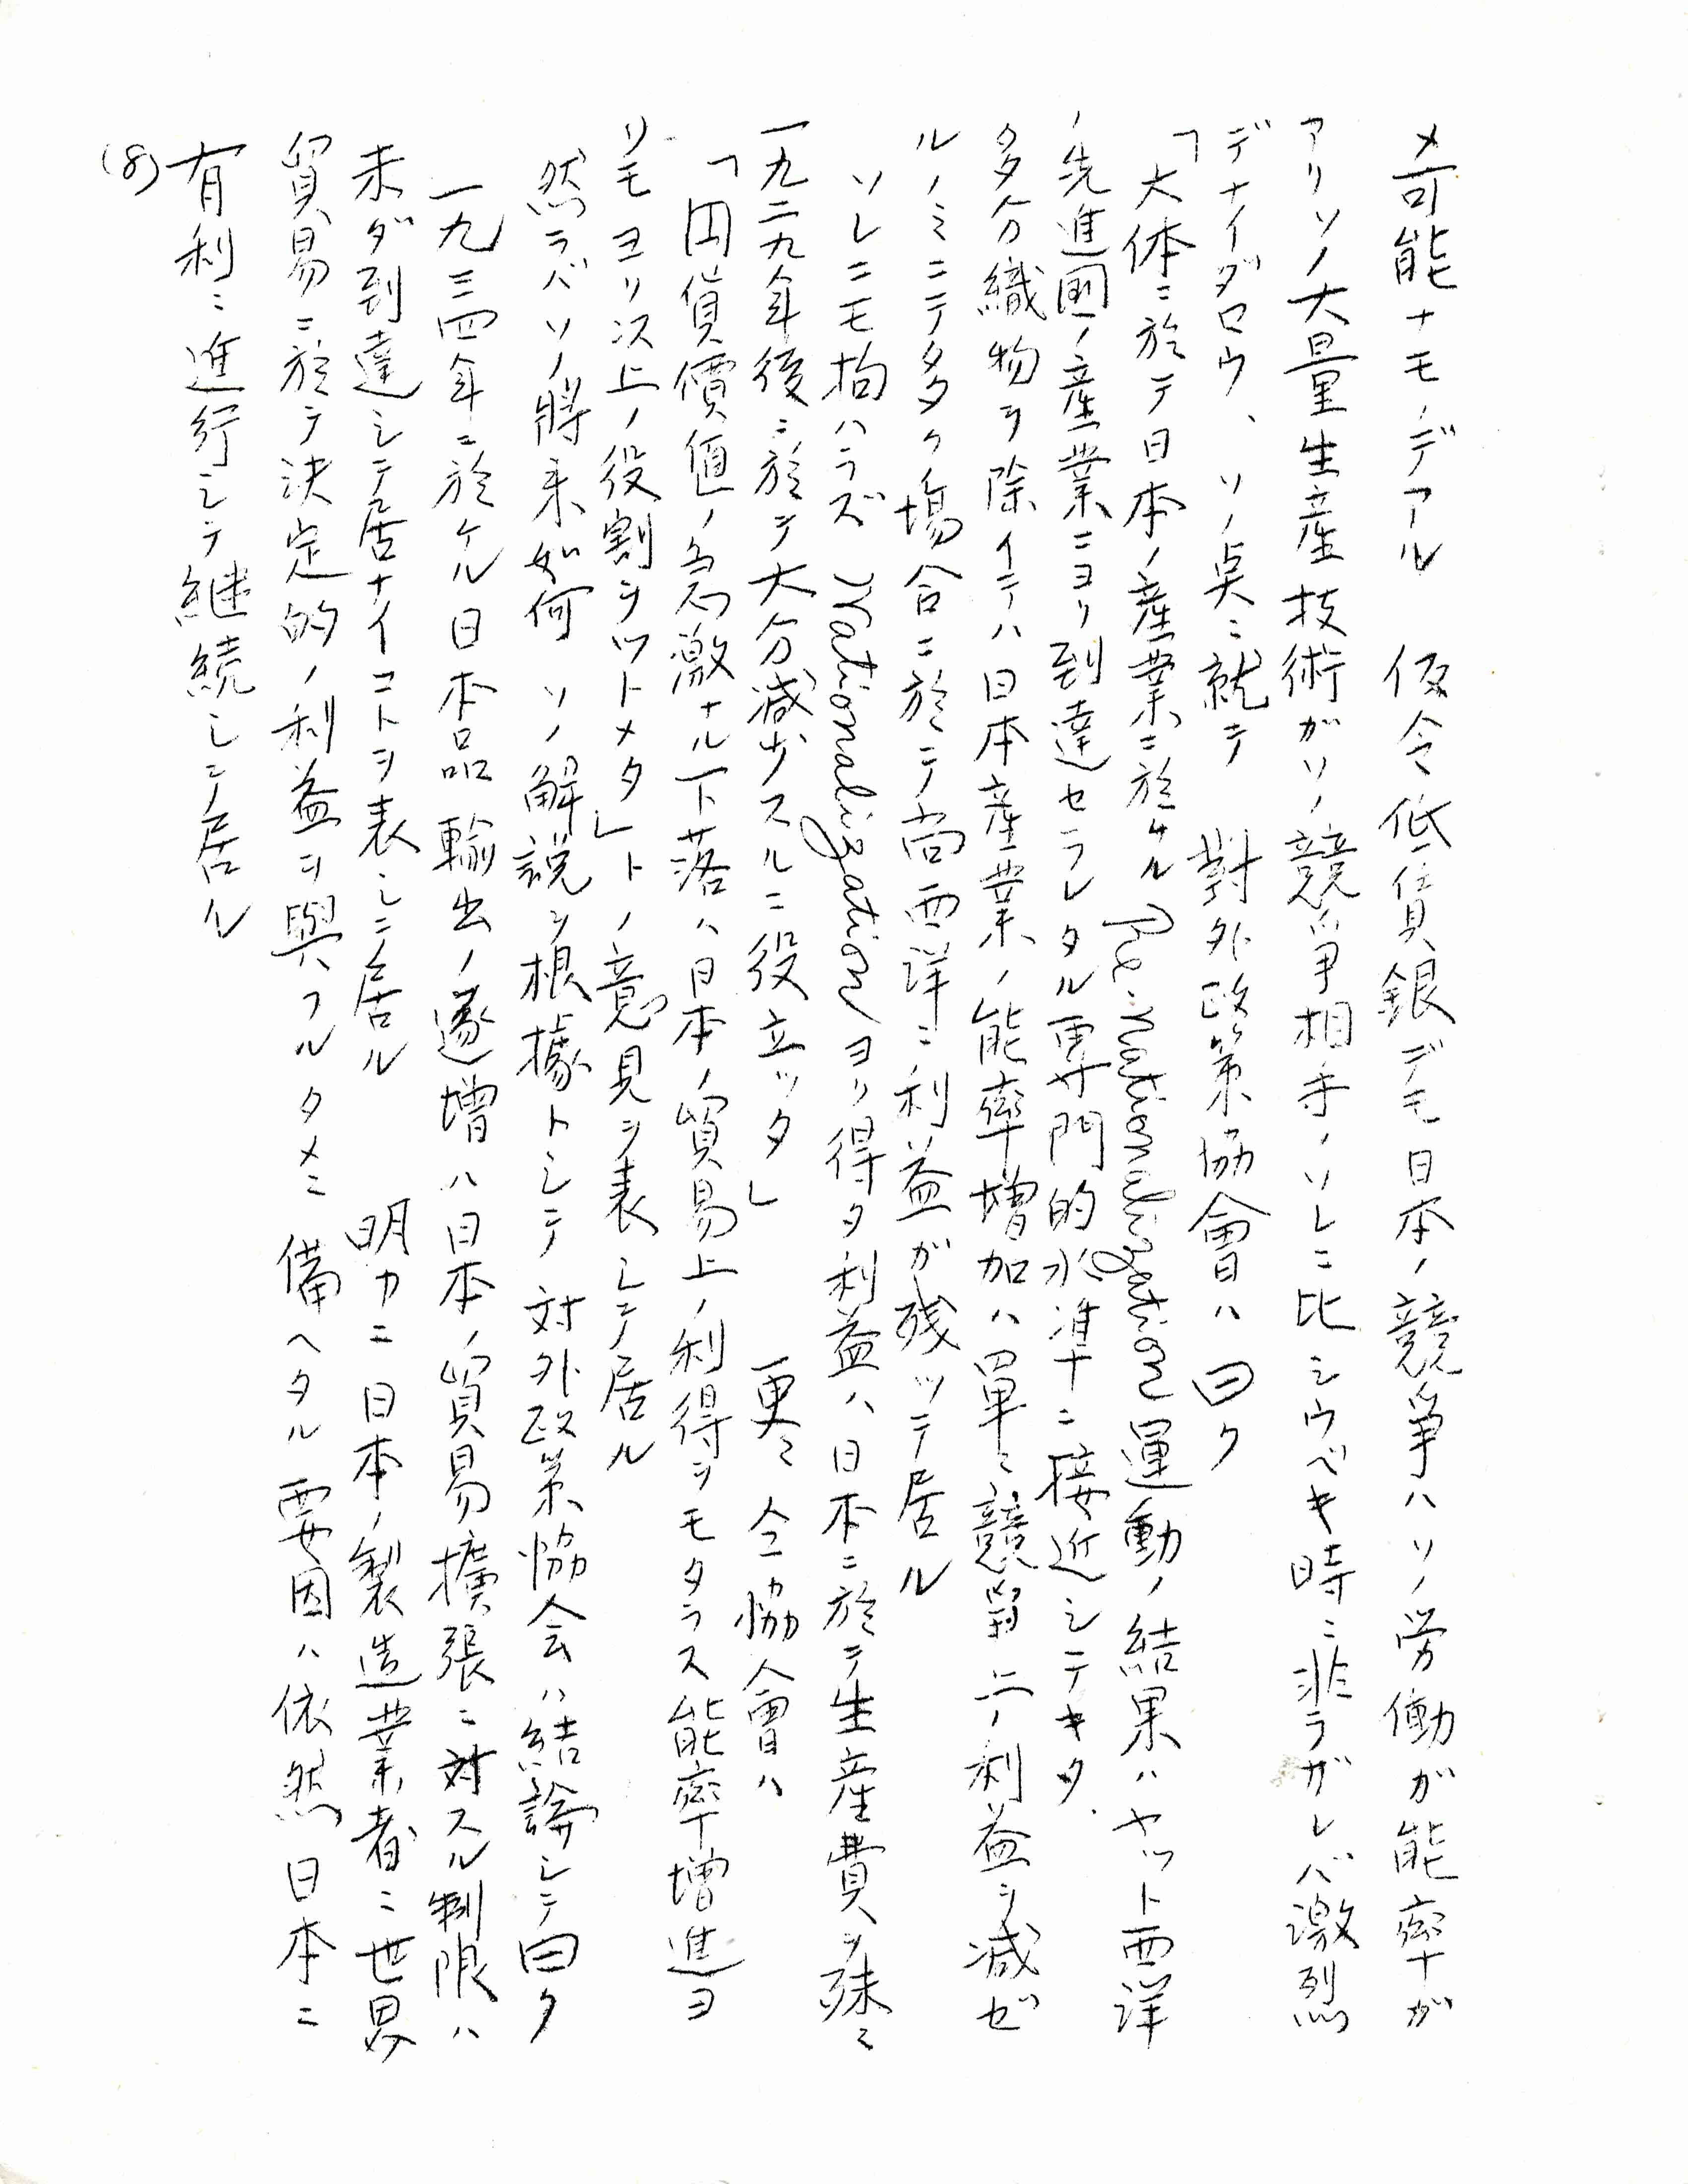 メ可能ナモノデアル 仮令低賃銀デモ日本ノ競争ハソノ労働ガ能率ガ
アリソノ大量生産技術ガソノ競争相手ノソレニ比シウベキ時ニ非ラザレバ激烈
デナイダロウ、ソノ点ニ就テ 對外政策協會ハ曰ク
「大体ニ於テ日本ノ産業ニ於ケル Re-nationalization 運動ノ結果ハヤット西洋
ノ先進國ノ産業ニヨリ到達セラレタル専門的水準ニ接近シテキタ、
多分織物ヲ除イテハ日本産業ノ能率増加ハ単ニ競争上ノ利益ヲ減ゼ
ルノミニテ多ク場合ニ於テ尚西洋ニ利益ガ残ッテ居ル
ソレニモ拘ハラズ Nationalization ヨリ得タ利益ハ日本ニ於テ生産費ヲ殊ニ
一九二九年後ニ於テ大分減少スルニ役立ッタ」 更ニ仝協會ハ
「円貨價値ノ急激ナル下落ハ日本ノ貿易上ノ利得ヲモタラス能率増進ヨ
リモヨリ以上ノ役割ヲツトメタ」トノ意見ヲ表シテ居ル
然ラバソノ將来如何 ソノ解説ヲ根據トシテ対外政策協会ハ結論シテ曰ク
一九三四年ニ於ケル日本品輸出ノ逐増ハ日本ノ貿易擴張ニ対スル制限ハ
未ダ到達シテ居ナイコトヲ表シテ居ル 明カニ日本ノ製造業者ニ世界
貿易ニ於テ決定的ノ利益ヲ與フルタメニ備ヘタル要因ハ依然日本ニ
有利ニ進行シテ継続シテ居ル
(8)